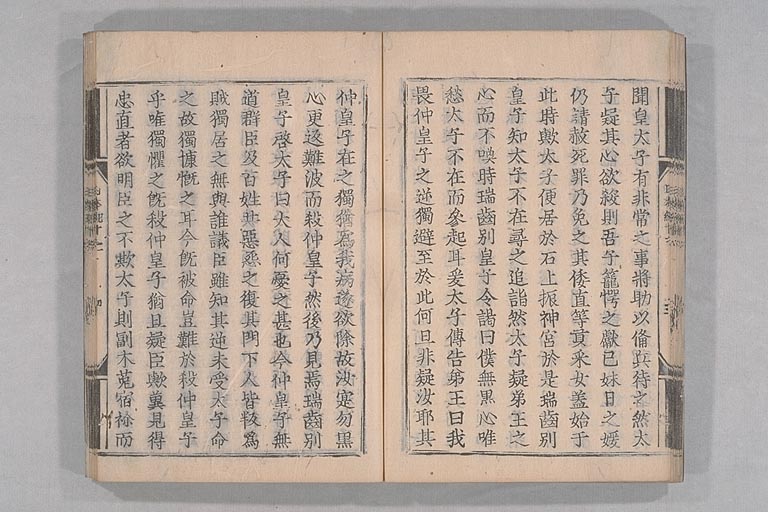 聞皇太子有非常之事將助以備兵待之然太
子疑其心欲殺則吾子籠愕之獻己妹日之媛
仍請赦死罪乃免之其倭直等貢采女蓋始于
此時歟太子便居於石上振神宮於是瑞齒別
皇子知太子不在尋之追詣然太子疑弟王之
心而不喚時瑞齒別皇子令謁曰僕無黑心唯
愁太子不在而參赴耳爰太子傳告弟王曰我
畏仲皇子之逆獨避至於此何且非疑汝耶其
仲皇子在之獨猶爲我病遂欲除故汝寔勿黑
心更返難波而殺仲皇子然後乃見焉瑞齒別
皇子啓太子曰大人何憂之甚也今仲皇子無
道群臣及百姓共惡怨之復其門下人皆叛爲
賊獨居之無與誰議臣雖知其逆未受太子命
之故獨慷慨之耳今既被命豈難於殺仲皇子
乎唯獨懼之既殺仲皇子猶且疑臣歟冀見得
忠直者欲明臣之不欺太子則副木菟宿祢而